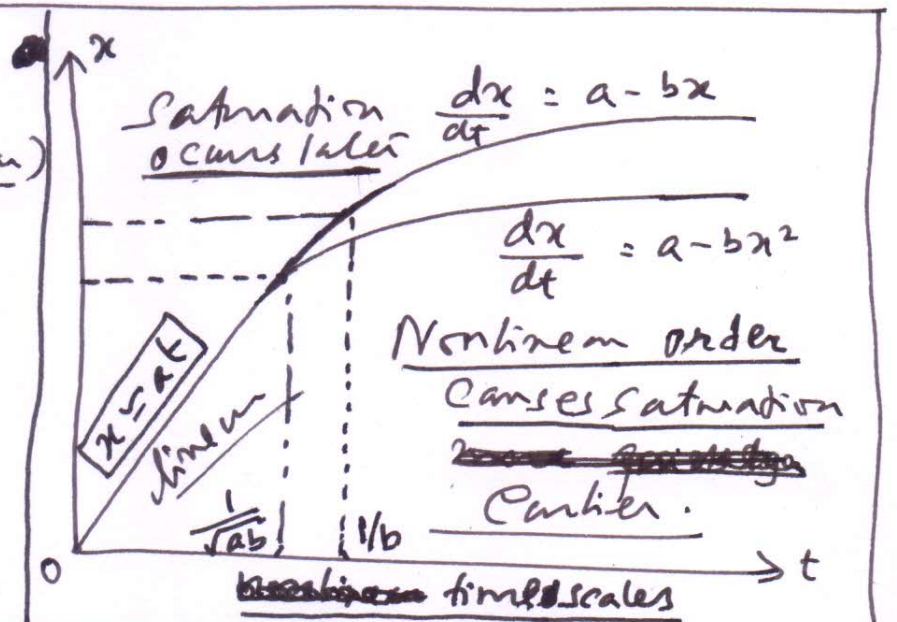 x
Saturation
occurs later
dx/dt = a - bx
dx/dt = a - bx²
Nonlinear order
causes saturation
Earlier.
x = at
linear
1/√ab
1/b
0
t
timescales